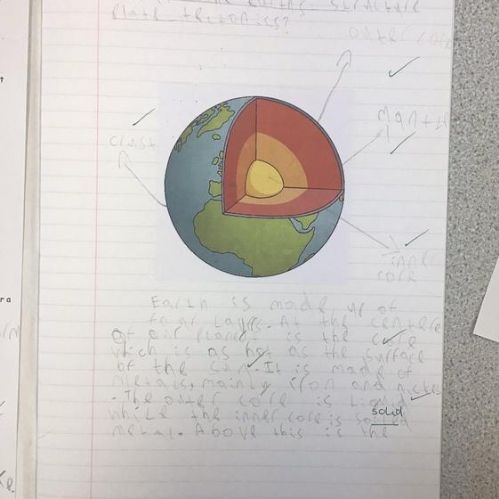 the Earths structure
Plate tectonics?
outer core
Mantle
crust
inner
core
Earth is made up of
four layers. At the centere
of our planet is the core
which is as hot as the surface
of the sun. It is made of
metals, mainly iron and nickel
. The outer core is liquid
solid
while the inner core is soiled
metal. Above this is the